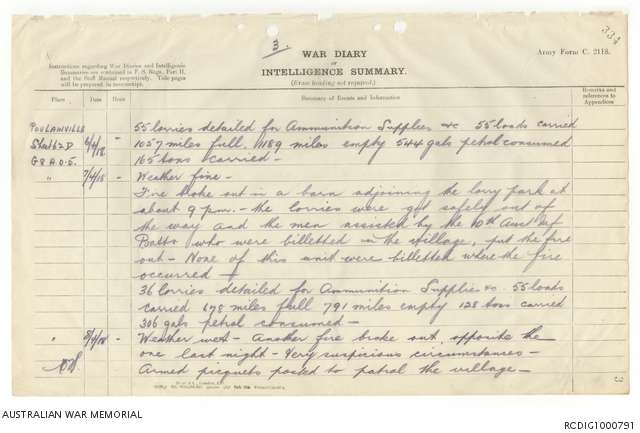 3.
334
WAR DIARY
or
INTELLIGENCE SUMMARY.
(Erase heading not required.)
Army Form C. 2118.
Instructions regarding War Diaries and Intelligence
Summaries are contained in F. S. Regs., Part II.
and the Staff Manual respectively. Title pages
will be prepared in manuscript.
Place Date Hour Summary of Events and Information Remarks and references to Appendices
POULAINVILLE 55 lorries detailed for Ammunition Supplies &c. 55 loads carried
Sheet 62D 6/4/18 - 1057 miles full, 1189 miles empty 544 gals petrol consumed
G 8 A.0.5. 165 tons carried -
" 7/4/18 - Weather fine -
Fire broke out in a barn adjoining the lorry park at
about 9 p.m. - the lorries were got safely out of
the way and the men assisted by the 10th Aust Inf
Battn who were billetted in the village, put the fire
out - None of this unit were billetted where the fire
occurred
36 lorries detailed for Ammunition Supplies &c. 55 loads
carried 678 miles full 791 miles empty 128 tons carried
306 gals petrol consumed -
" 8/4/18 - Weather wet - Another fire broke out opposite the
one last night - Very suspicious circumstances -
Armed picquets posted to patrol the village -
AUSTRALIAN WAR MEMORIAL
RCDIG1000791